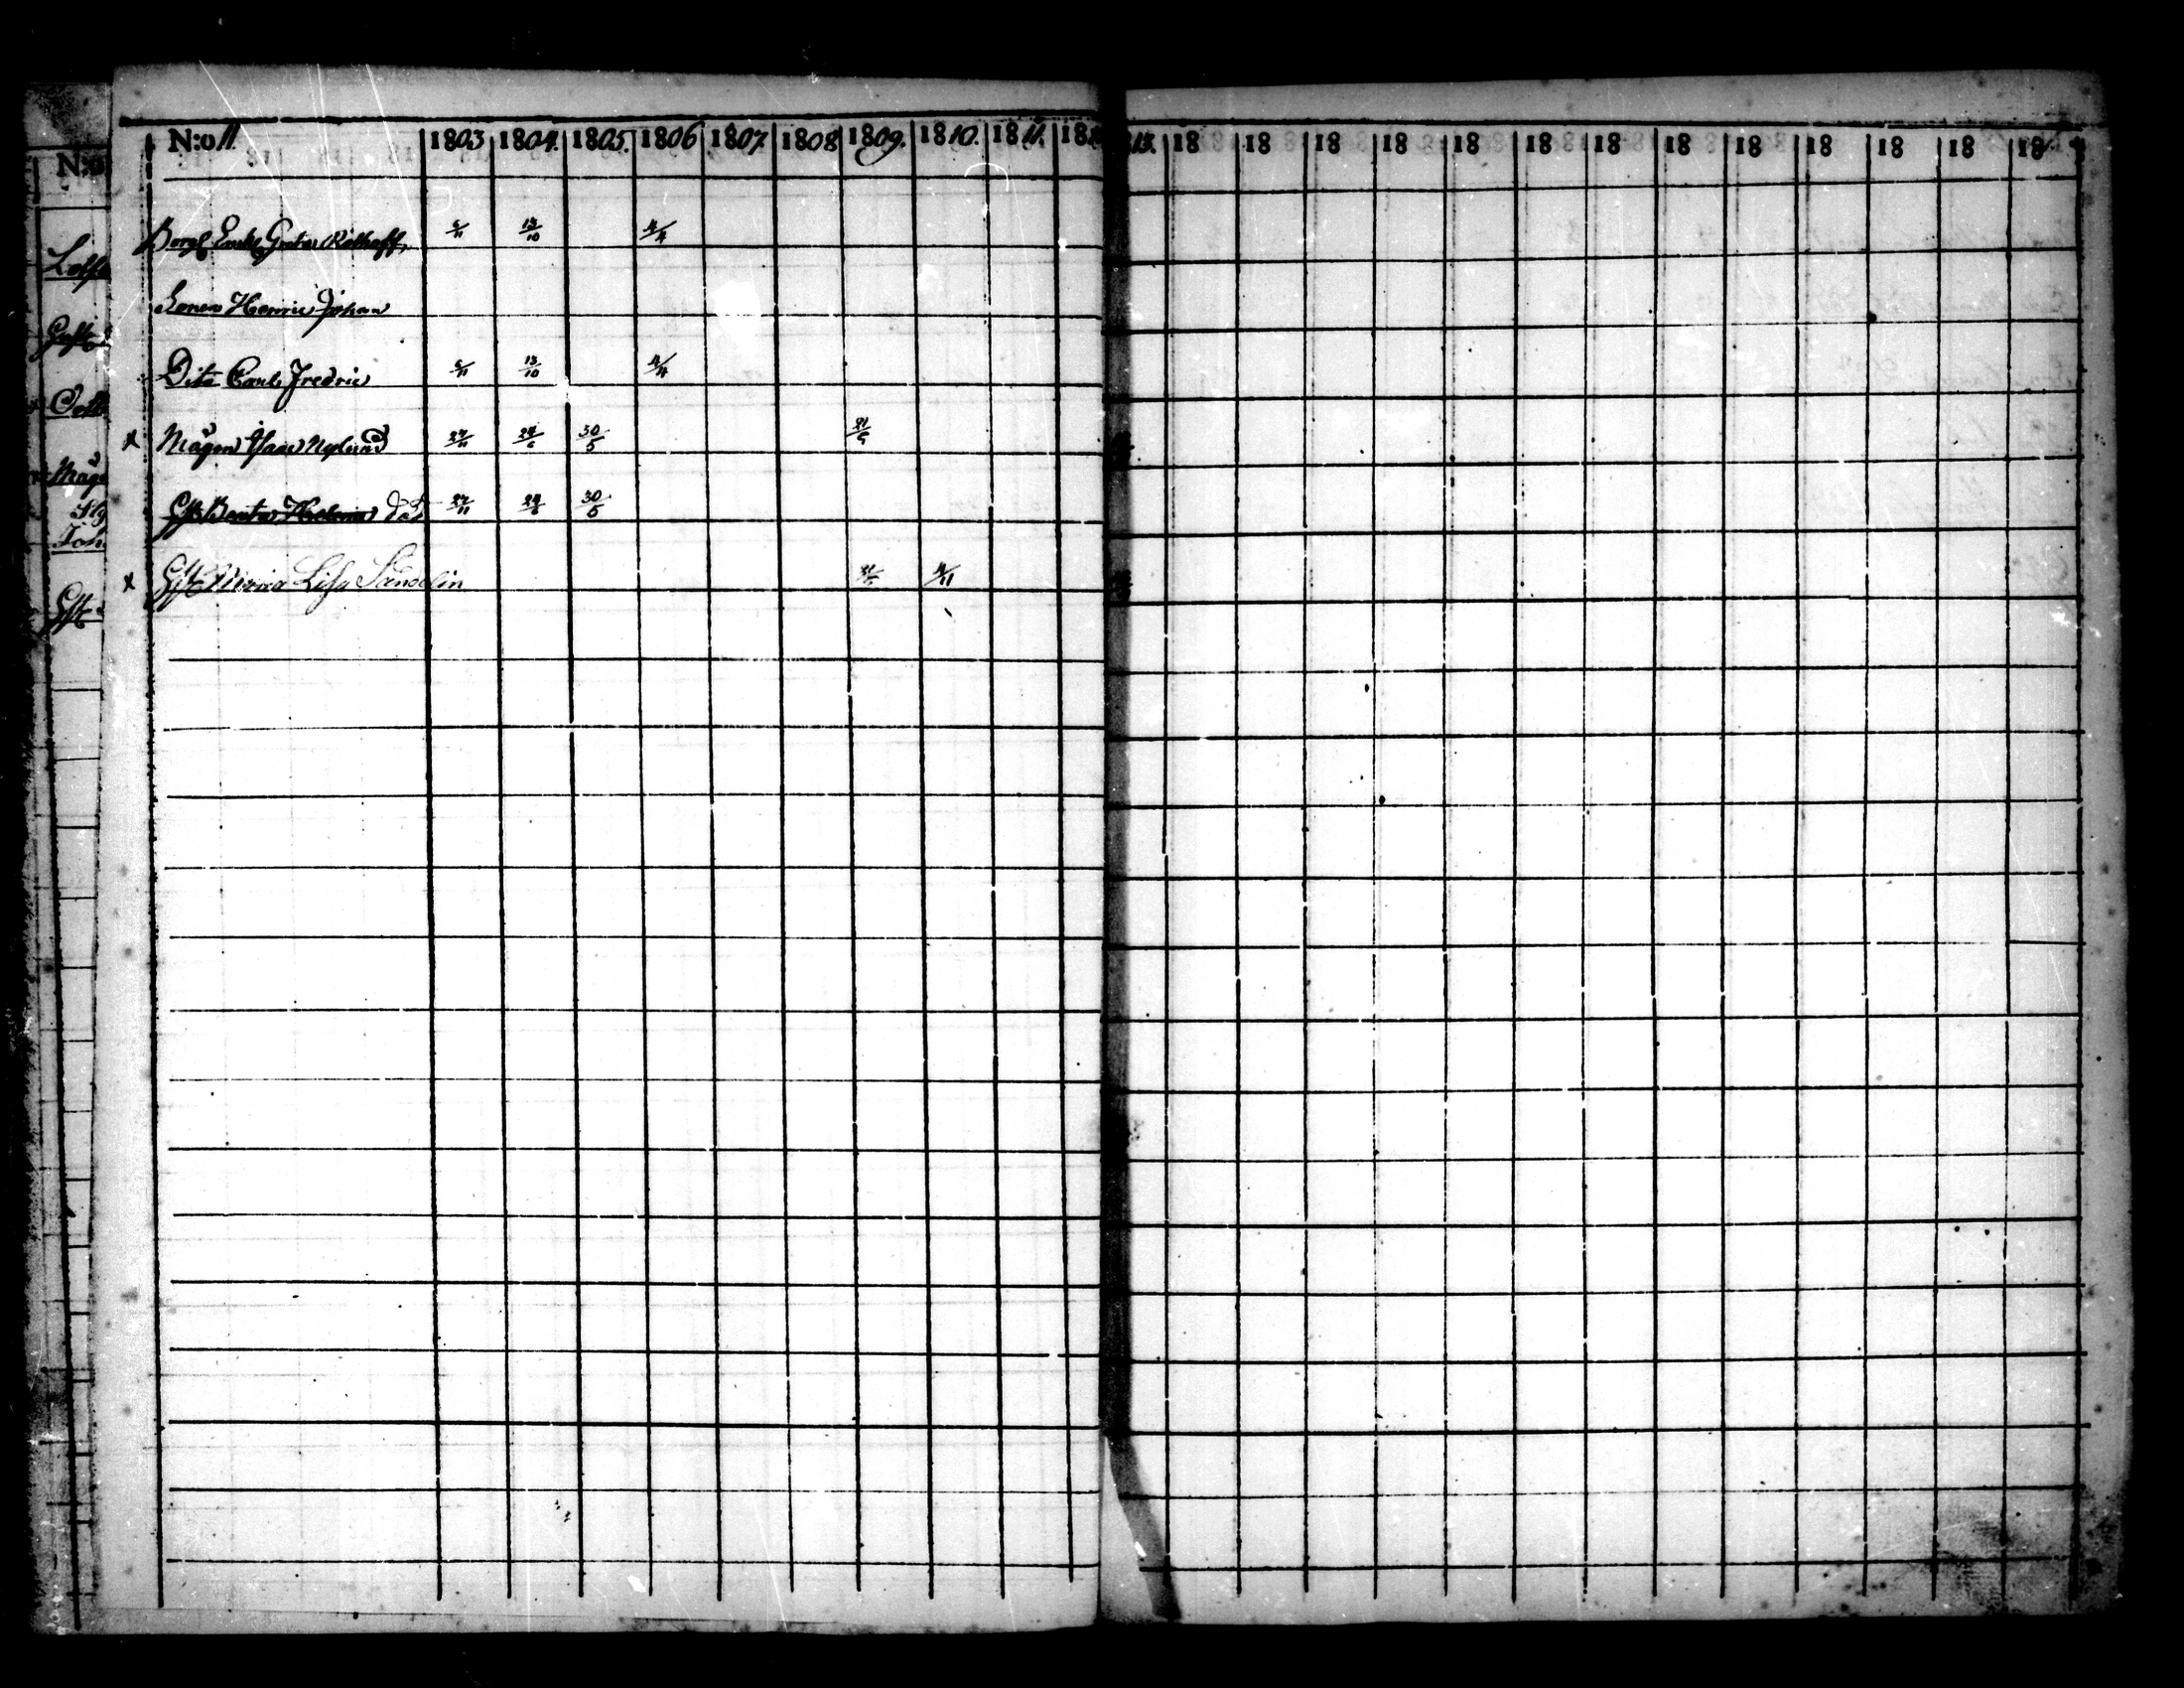 N:o 11 1803 1804. 1805. 1806 1807. 1808 1809. 1810. 1811. 18 13. 18 18 18 18 18 18 18 18 18 18 18 18 18
Borg. Enka Greta Rolhoff, 5/11 13/10 4/4
Sonen Henric Johan
Dito Carl Fredric 5/11 13/10 4/4
x Mågen Isaac Nylund 27/11 24/6 30/5 21/5
Hst Beata Helena död 27/11 24/6 30/5
x Hst Maria Lisa Sandelin 4/11
N:o